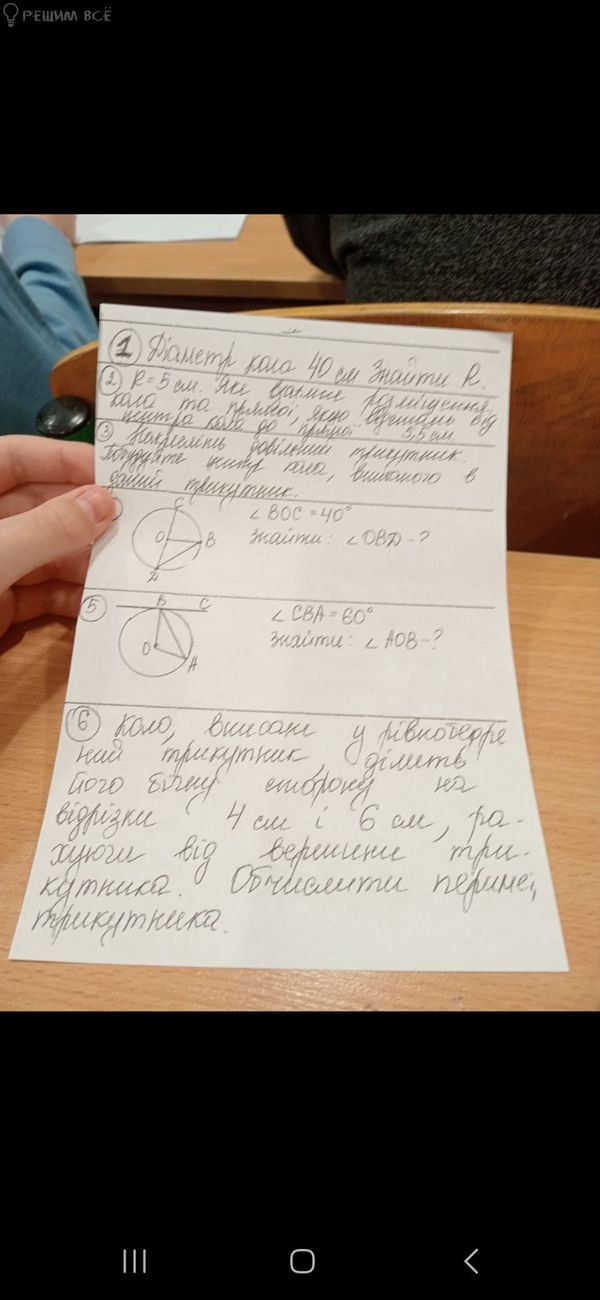 РЕШИМ ВСЁ
1 Діаметр кола 40 см Знайти R.
2 R = 5 см. Яке взаємне розміщення
кола та прямої, якщо відстань від
центра кола до прямої 3,5 см.
3 Накресліть довільний трикутник.
Побудуйте центр кола, вписаного в
даний трикутник.
C
O B
∠BOC = 40°
Знайти: ∠OBD - ?
5
B C
O A
∠CBA = 60°
Знайти: ∠AOB - ?
6 Коло, вписане у рівнобедре
ний трикутник, ділить
його бічну сторону на
відрізки 4 см і 6 см, ра-
хуючи від вершини три-
кутника. Обчислити
трикутника.